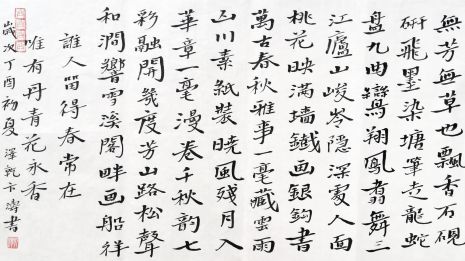 無芳無草也飄香石硯
研飛墨染塘筆走龍蛇
盤九曲鸞翔鳳翥舞三
江廬山峻岑隱深處人面
桃花映滿墻鐵画銀鉤書
萬古春秋雅事一毫藏雲雨
山川素紙裝曉風殘月入
華章一毫漫卷千秋韵七
彩融開幾度芳山路松聲
和澗響雪溪閣畔画船徉
誰人留得春常在
唯有丹青花永香
歲次丁酉初夏
書